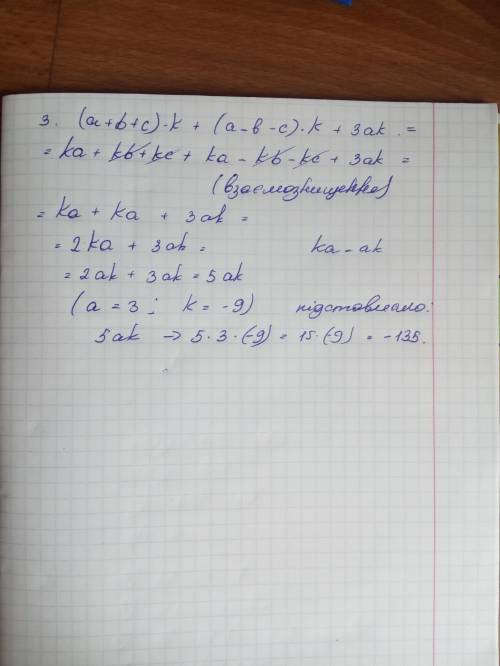 3. (a+b+c)·k + (a-b-c)·k + 3ak =
= ka + kb + kc + ka - kb - kc + 3ak =
(взаємознищення)
= ka + ka + 3ak =
= 2ka + 3ak = ka = ak
= 2ak + 3ak = 5ak
(a = 3; k = -9) підставляємо:
5ak → 5·3·(-9) = 15·(-9) = -135.